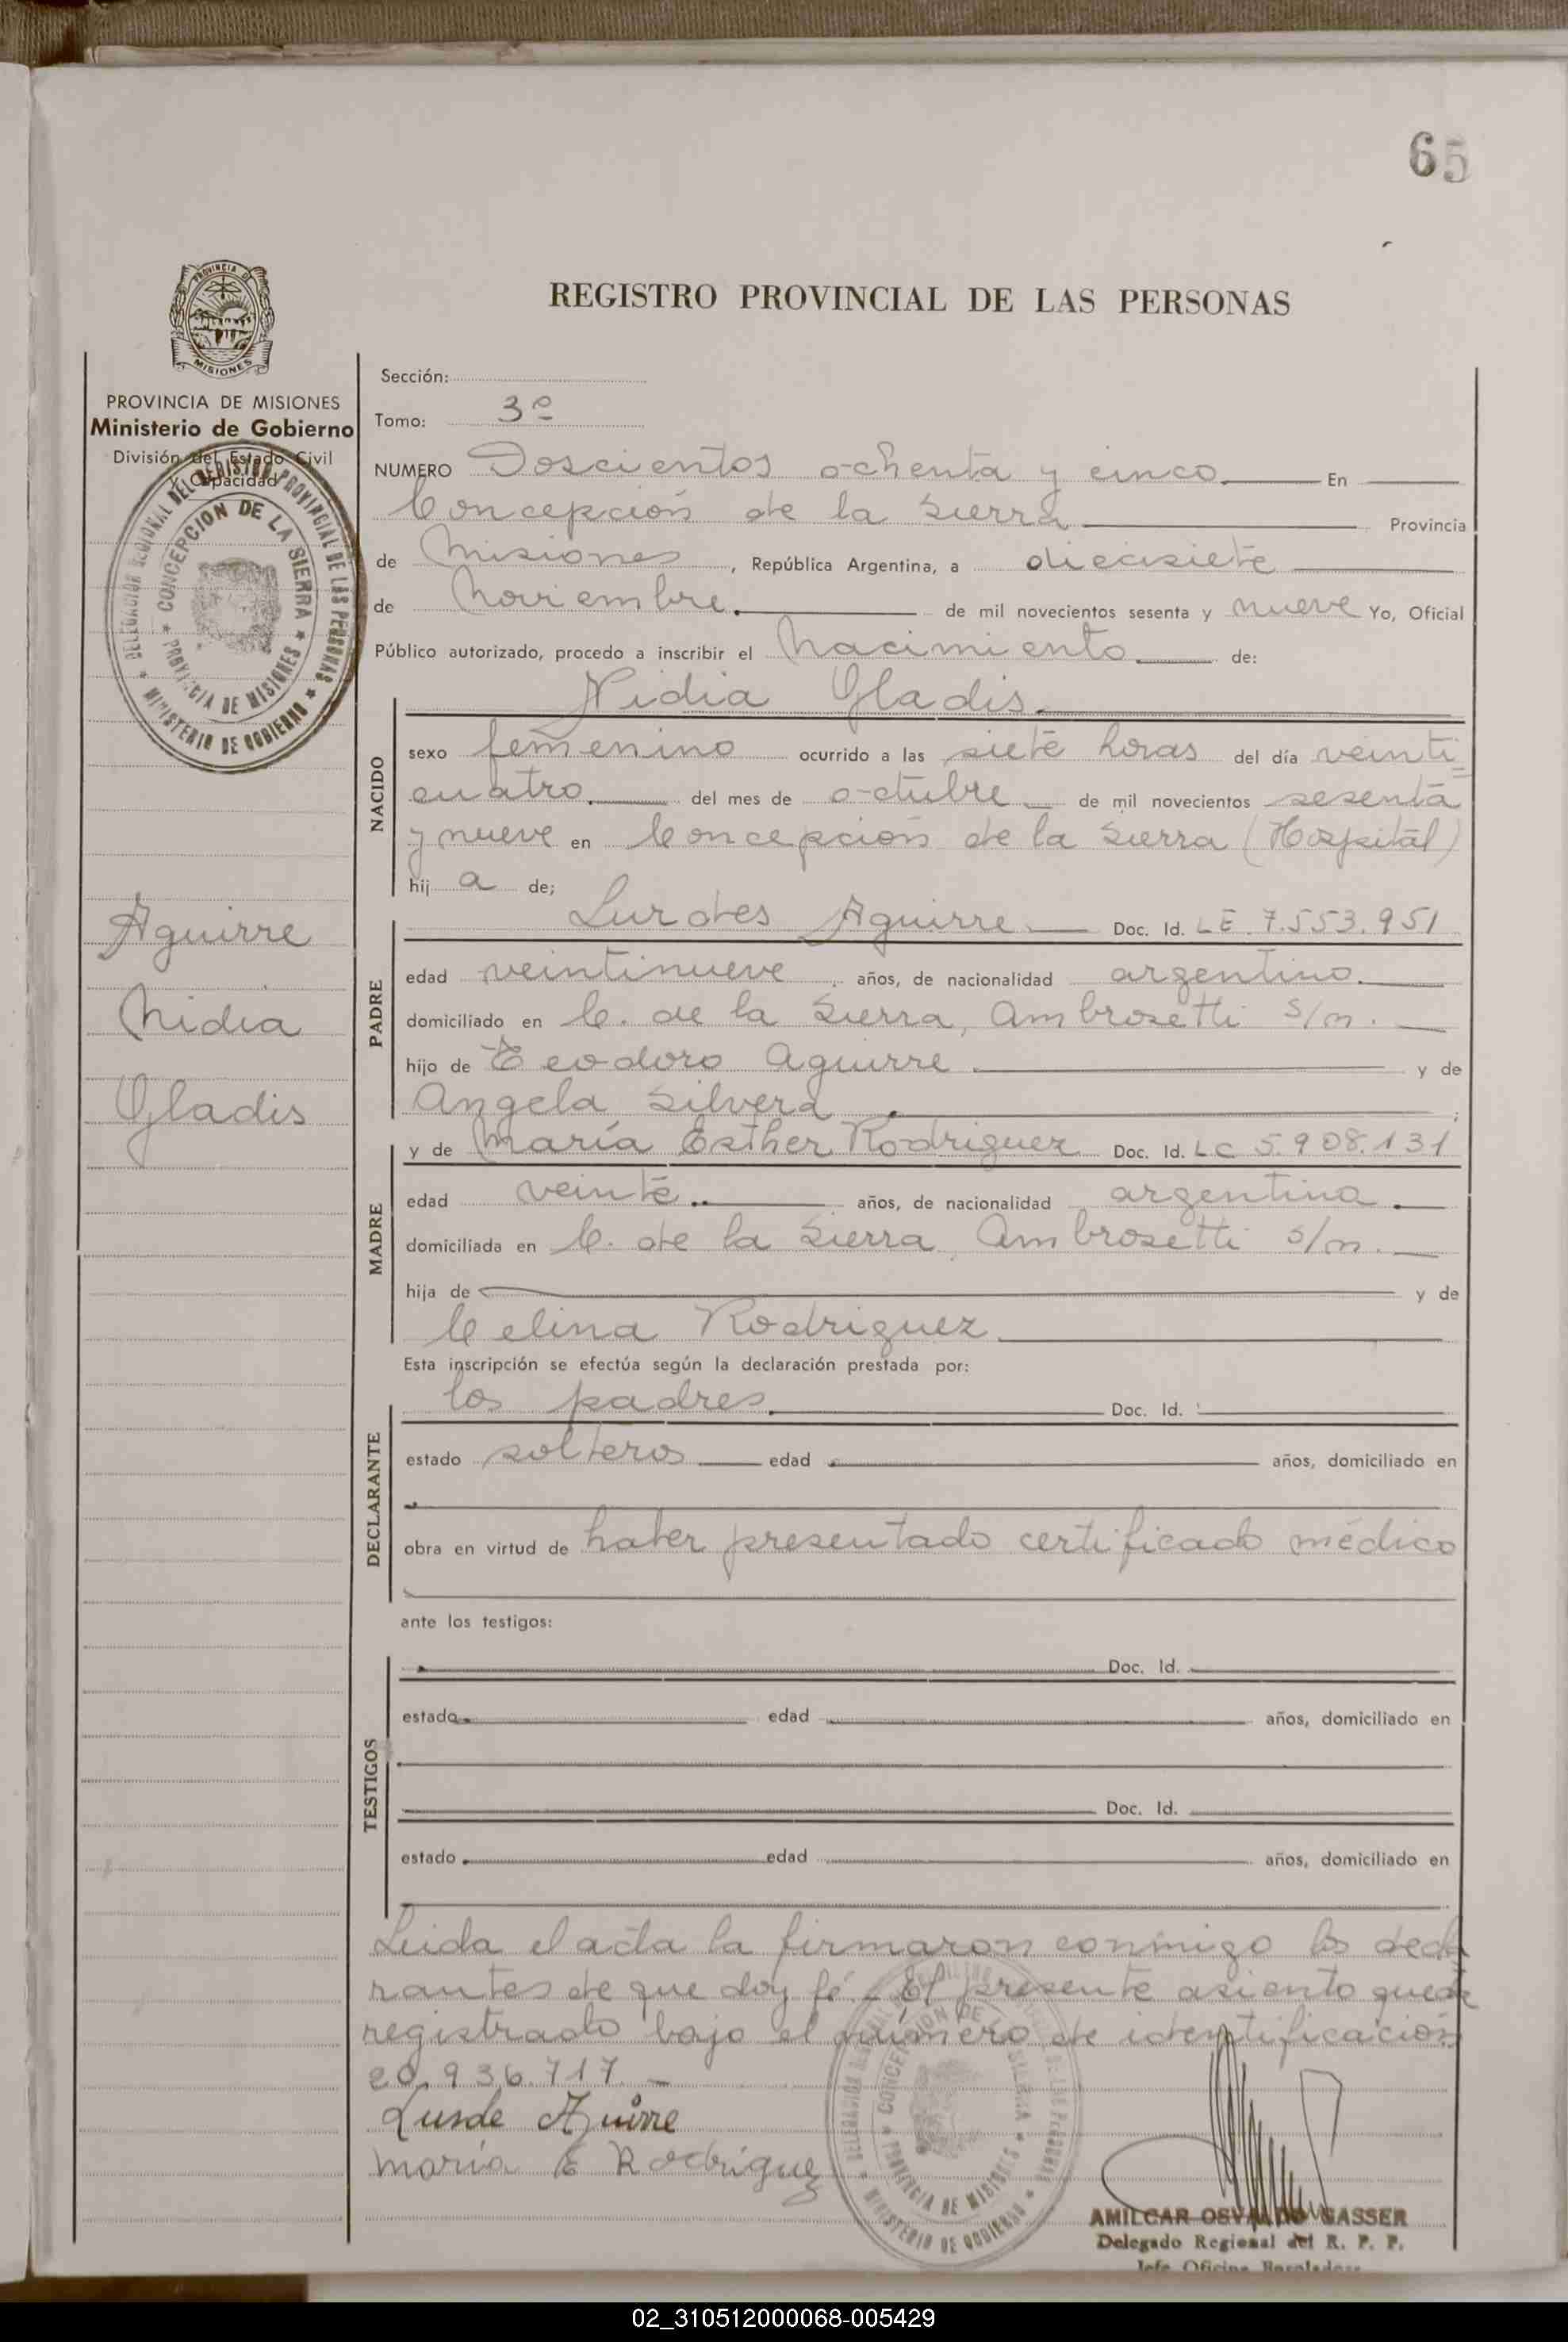 65
PROVINCIA DE
MISIONES
REGISTRO PROVINCIAL DE LAS PERSONAS
PROVINCIA DE MISIONES
Ministerio de Gobierno
División del Estado Civil
y Capacidad
DELEGACION REGIONAL DEL REGISTRO PROVINCIAL DE LAS PERSONAS
★ CONCEPCION DE LA SIERRA ★
PROVINCIA DE MISIONES
★ MINISTERIO DE GOBIERNO ★
Aguirre
Nidia
Gladis
Sección:
Tomo: 3º
NUMERO Doscientos ochenta y cinco En
Concepción de la Sierra Provincia
de Misiones, República Argentina, a diecisiete
de Noviembre. de mil novecientos sesenta y nueve Yo, Oficial
Público autorizado, procedo a inscribir el Nacimiento de:
Nidia Gladis.
NACIDO
sexo femenino ocurrido a las siete horas del día veinti=
cuatro. del mes de octubre de mil novecientos sesenta
y nueve en Concepción de la Sierra (Hospital)
hij a de;
PADRE
Lurdes Aguirre Doc. Id. LE. 7.553.951
edad veintinueve años, de nacionalidad argentino.
domiciliado en C. de la Sierra, Ambrosetti s/n.
hijo de Teodoro Aguirre y de
Angela Silvera
MADRE
y de María Esther Rodriguez Doc. Id. LC 5.908.131
edad veinte años, de nacionalidad argentina
domiciliada en C. de la Sierra, Ambrosetti s/n.
hija de y de
Celina Rodriguez
Esta inscripción se efectúa según la declaración prestada por:
DECLARANTE
los padres. Doc. Id.
estado solteros edad años, domiciliado en
obra en virtud de haber presentado certificado médico
ante los testigos:
TESTIGOS
Doc. Id.
estado edad años, domiciliado en
Doc. Id.
estado edad años, domiciliado en
Leida el acta la firmaron conmigo los decla
rantes de que doy fé. El presente asiento queda
registrado bajo el número de identificación
20.936.717.
Lurde Aguirre
María E Rodriguez
DELEGACION REGIONAL DEL REGISTRO PROVINCIAL DE LAS PERSONAS
★ CONCEPCION DE LA SIERRA ★
PROVINCIA DE MISIONES
★ MINISTERIO DE GOBIERNO ★
AMILCAR OSVALDO GASSER
Delegado Regional del R. P. P.
Jefe Oficina
02_310512000068-005429